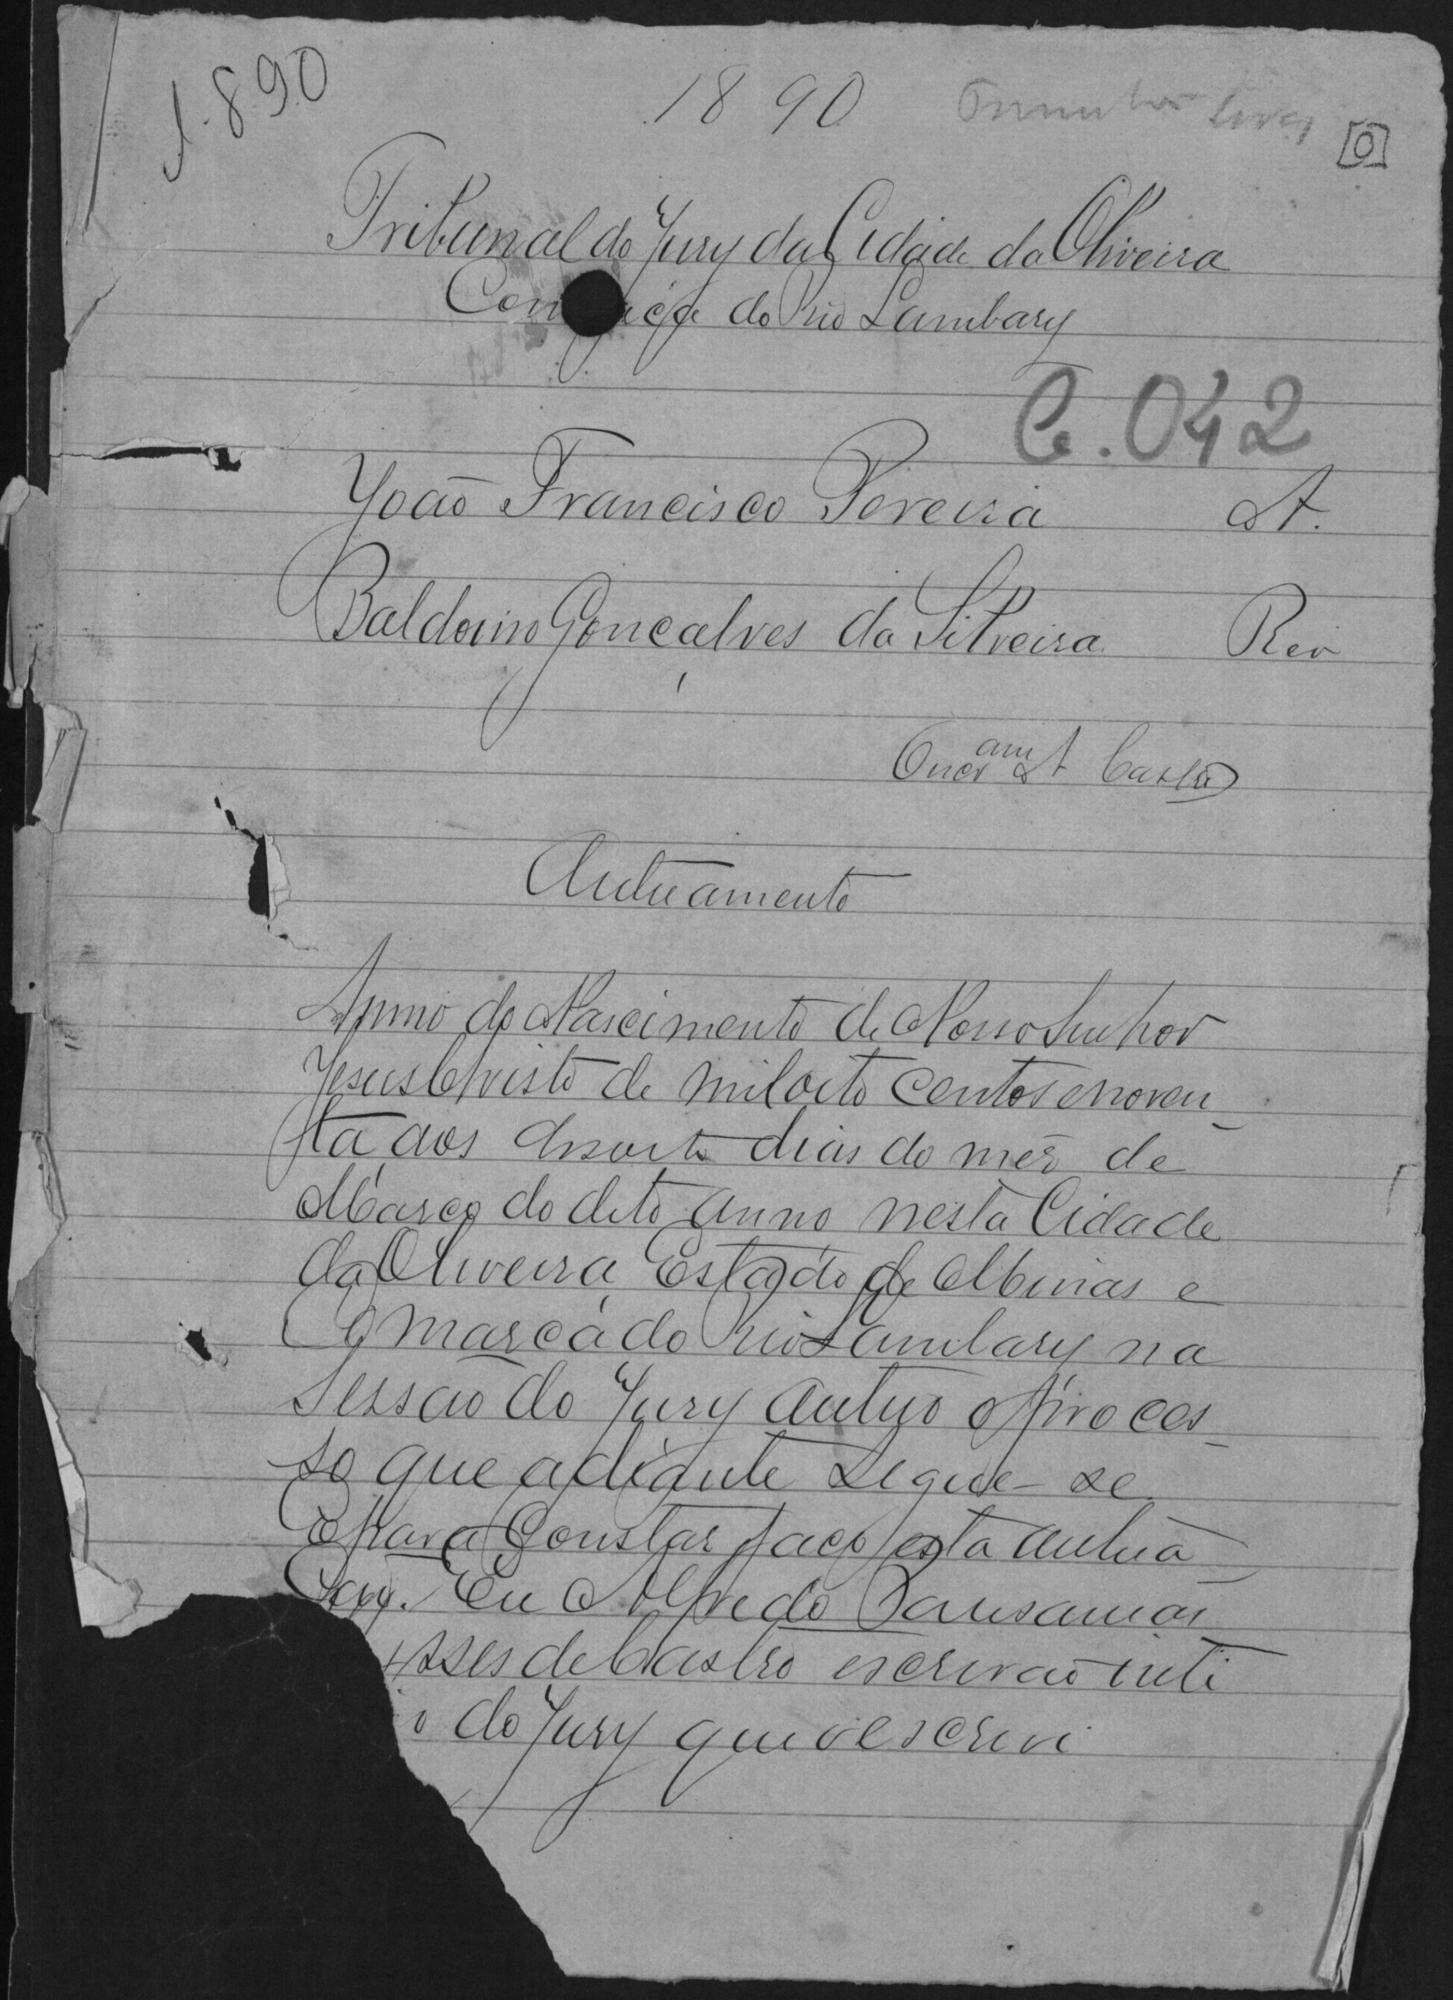 1890
1890
[0]
Tribunal do Jury da Cidade da Oliveira
Com ca do Rio Lambary
C. 042
João Francisco Pereira A.
Baldoino Gonçalves da Silveira Reo
A Castro
Autuamento
Anno do Nascimento de Nosso Senhor
Jesus Christo de mil oito centos e noven
ta, aos desoito dias do mez de
Março do dito anno nesta Cidade
da Oliveira, Estado de Minas e
Comarca do Rio Lambary na
Sessão do Jury autuo o proces
so que adiante segue-se
E para constar faço esta autua
ção. Eu Alfredo
de Castro escrivão inte
o do Jury que o escrevi